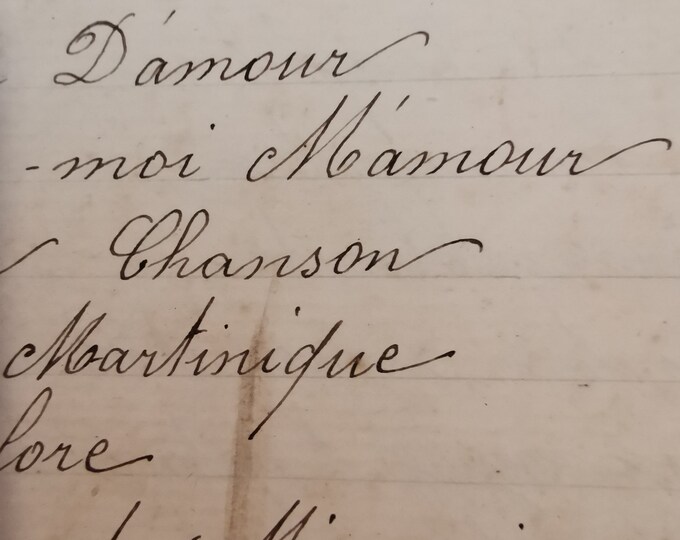 D'amour
-moi M'amour
Chanson
Martinique
lore